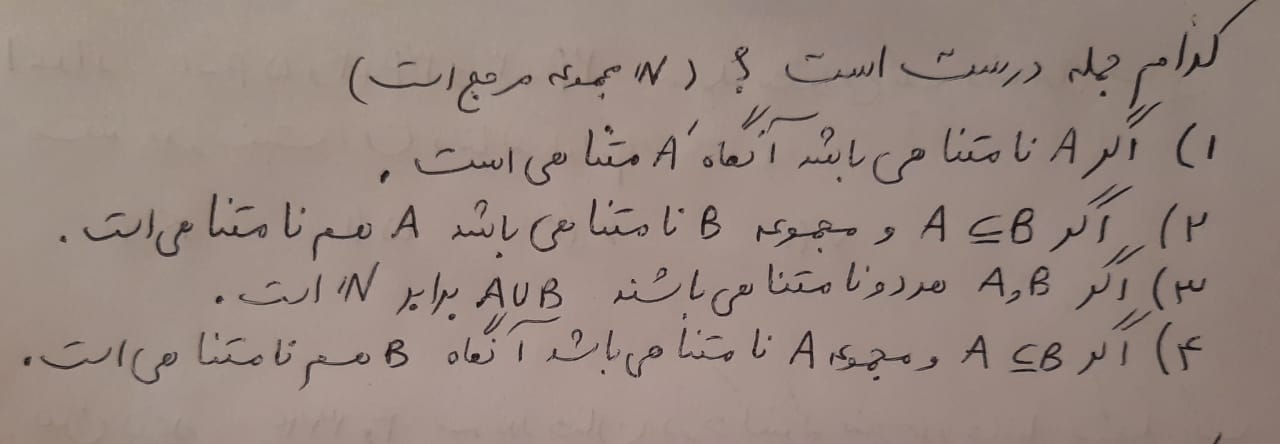 کدام جمله درست است ؟ ( ℕ مجموعه مرجع است )
۱) اگر A نامتناهی باشد آنگاه A′ متناهی است .
۲) اگر A ⊆ B و مجموعه B نامتناهی باشد A هم نامتناهی است .
۳) اگر A و B هردو نامتناهی باشند A∪B برابر ℕ است .
۴) اگر A ⊆ B و مجموعه A نامتناهی باشد آنگاه B هم نامتناهی است .